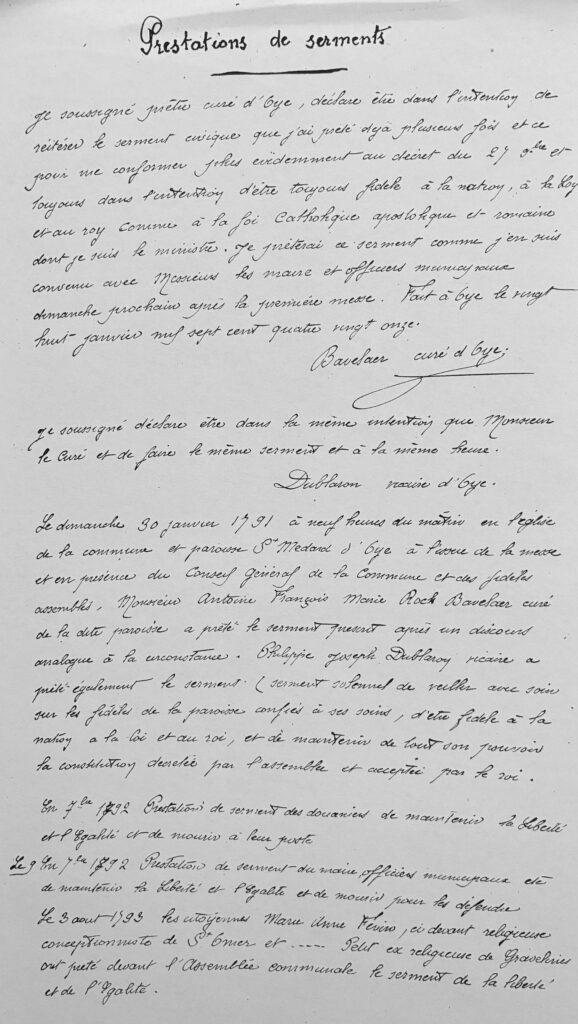 Prestations de serments
Je soussigné prêtre curé d'Oye, déclare être dans l'intention de
réitérer le serment civique que j'ai prêté déjà plusieurs fois et ce
pour me conformer plus évidemment au décret du 27 9bre et
toujours dans l'intention d'être toujours fidèle à la nation, à la loy
et au roy comme à la foi catholique apostolique et romaine
dont je suis le ministre. Je prêterai ce serment comme j'en suis
convenu avec Messieurs les maire et officiers municipaux
dimanche prochain après la première messe. Fait à Oye le vingt
huit janvier mil sept cent quatre vingt onze.
Bavelaer curé d'Oye;
Je soussigné déclare être dans la même intention que Monsieur
le Curé et de faire le même serment et à la même heure.
Dublaron vicaire d'Oye.
Le dimanche 30 janvier 1791 à neuf heures du matin en l'église
de la commune et paroisse St Medard d'Oye à l'issue de la messe
et en présence du Conseil général de la Commune et des fidèles
assemblés, Monsieur Antoine François Marie Rock Bavelaer curé
de la dite paroisse a prêté le serment prescrit après un discours
analogue à la circonstance. Philippe Joseph Dublaron vicaire a
prêté également le serment (serment solennel de veiller avec soin
sur les fidèles de la paroisse confiés à ses soins, d'être fidèle à la
nation a la loi et au roi, et de maintenir de tout son pouvoir
la constitution décrétée par l'assemblée et acceptée par le roi.
En 7bre 1792 Prestation de serment des douaniers de maintenir la Liberté
et l'Egalité et de mourir à leur poste
Le 9 En 7bre 1792 Prestation de serment du maire officiers municipaux etc
de maintenir la Liberté et l'Egalité et de mourir pour les défendre
Le 3 aout 1793 les citoyennes Marie Anne ci devant religieuse
conceptionniste de St Omer et ..... Petit ex religieuse de Gravelines
ont prêté devant l'Assemblée communale le serment de la liberté
et de l'Egalité.